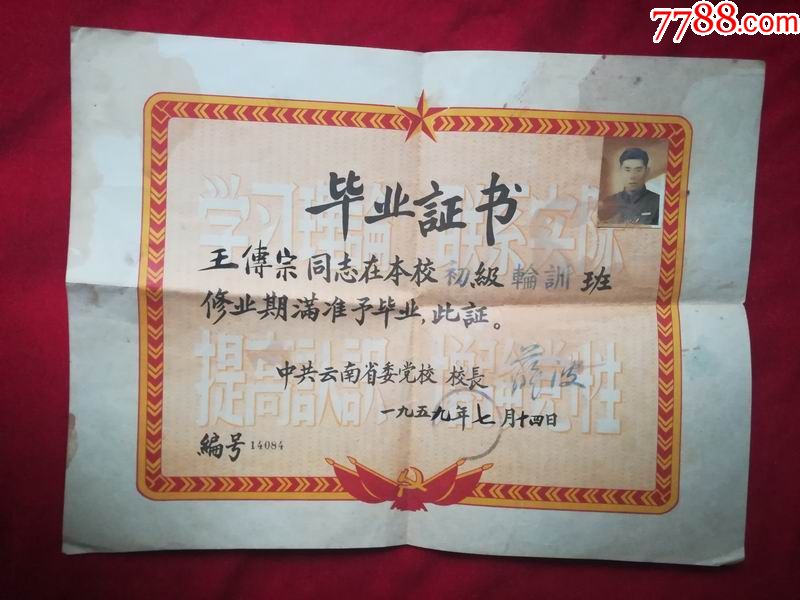 7788.com
毕业証书
王傳宗同志在本校初級輪訓班
修业期滿准予毕业，此証。
中共云南省委党校 校長
一九五九年七月十四日
編号 14084
学习理論 联系实际
提高認識 增強党性